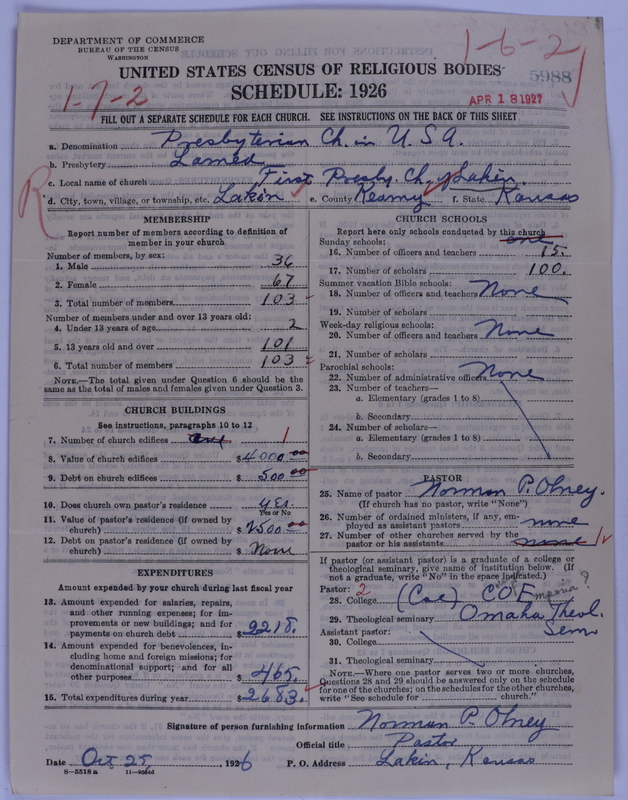 DEPARTMENT OF COMMERCE
BUREAU OF THE CENSUS
WASHINGTON
1-6-2
UNITED STATES CENSUS OF RELIGIOUS BODIES
5988
1-7-2
SCHEDULE: 1926
APR 18 1927
FILL OUT A SEPARATE SCHEDULE FOR EACH CHURCH. SEE INSTRUCTIONS ON THE BACK OF THIS SHEET
a. Denomination Presbyterian Ch. in U.S.A.
b. Presbytery Larned
c. Local name of church First Presby. Ch. of Lakin.
R
d. City, town, village, or township, etc. Lakin e. County Kearny f. State Kansas
MEMBERSHIP
Report number of members according to definition of
member in your church
Number of members, by sex:
1. Male 36
2. Female 67
3. Total number of members 103
Number of members under and over 13 years old:
4. Under 13 years of age 2
5. 13 years old and over 101
6. Total number of members 103
NOTE.—The total given under Question 6 should be the
same as the total of males and females given under Question 3.
CHURCH BUILDINGS
See instructions, paragraphs 10 to 12
7. Number of church edifices one 1
8. Value of church edifices $4000 00
9. Debt on church edifices $500 00
10. Does church own pastor's residence yes.
Yes or No
11. Value of pastor's residence (if owned by
church) $2500 00
12. Debt on pastor's residence (if owned by
church) $ None
EXPENDITURES
Amount expended by church during last fiscal year
13. Amount expended for salaries, repairs,
and other running expenses; for im-
provements or new buildings; and for
payments on church debt $2218.
14. Amount expended for benevolences, in-
cluding home and foreign missions; for
denominational support; and for all
other purposes $465.
15. Total expenditures during year $2683.
CHURCH SCHOOLS
Report here only schools conducted by this church
Sunday schools: one
16. Number of officers and teachers 15.
17. Number of scholars 100.
Summer vacation Bible schools:
18. Number of officers and teachers None
19. Number of scholars
Week-day religious schools:
20. Number of officers and teachers None
21. Number of scholars
Parochial schools:
22. Number of administrative officers None
23. Number of teachers—
a. Elementary (grades 1 to 8)
b. Secondary
24. Number of scholars—
a. Elementary (grades 1 to 8)
b. Secondary
PASTOR
25. Name of pastor Norman P. Olney.
(If church has no pastor, write "None")
26. Number of ordained ministers, if any, em-
ployed as assistant pastors none
27. Number of other churches served by the
pastor or his assistants 1
If pastor (or assistant pastor) is a graduate of a college or
theological seminary, give name of institution below. (If
not a graduate, write "No" in the space indicated.)
Pastor: 2
28. College (Coe) COE
29. Theological seminary Omaha Theol.
Sem
Assistant pastor:
30. College
31. Theological seminary
NOTE.—Where one pastor serves two or more churches,
Questions 28 and 29 should be answered only on the schedule
for one of the churches; on the schedules for the other churches,
write "See schedule for church."
Signature of person furnishing information Norman P. Olney
Official title Pastor
Date Oct. 25, 1926 P. O. Address Lakin, Kansas
8—5518a 11—9054d